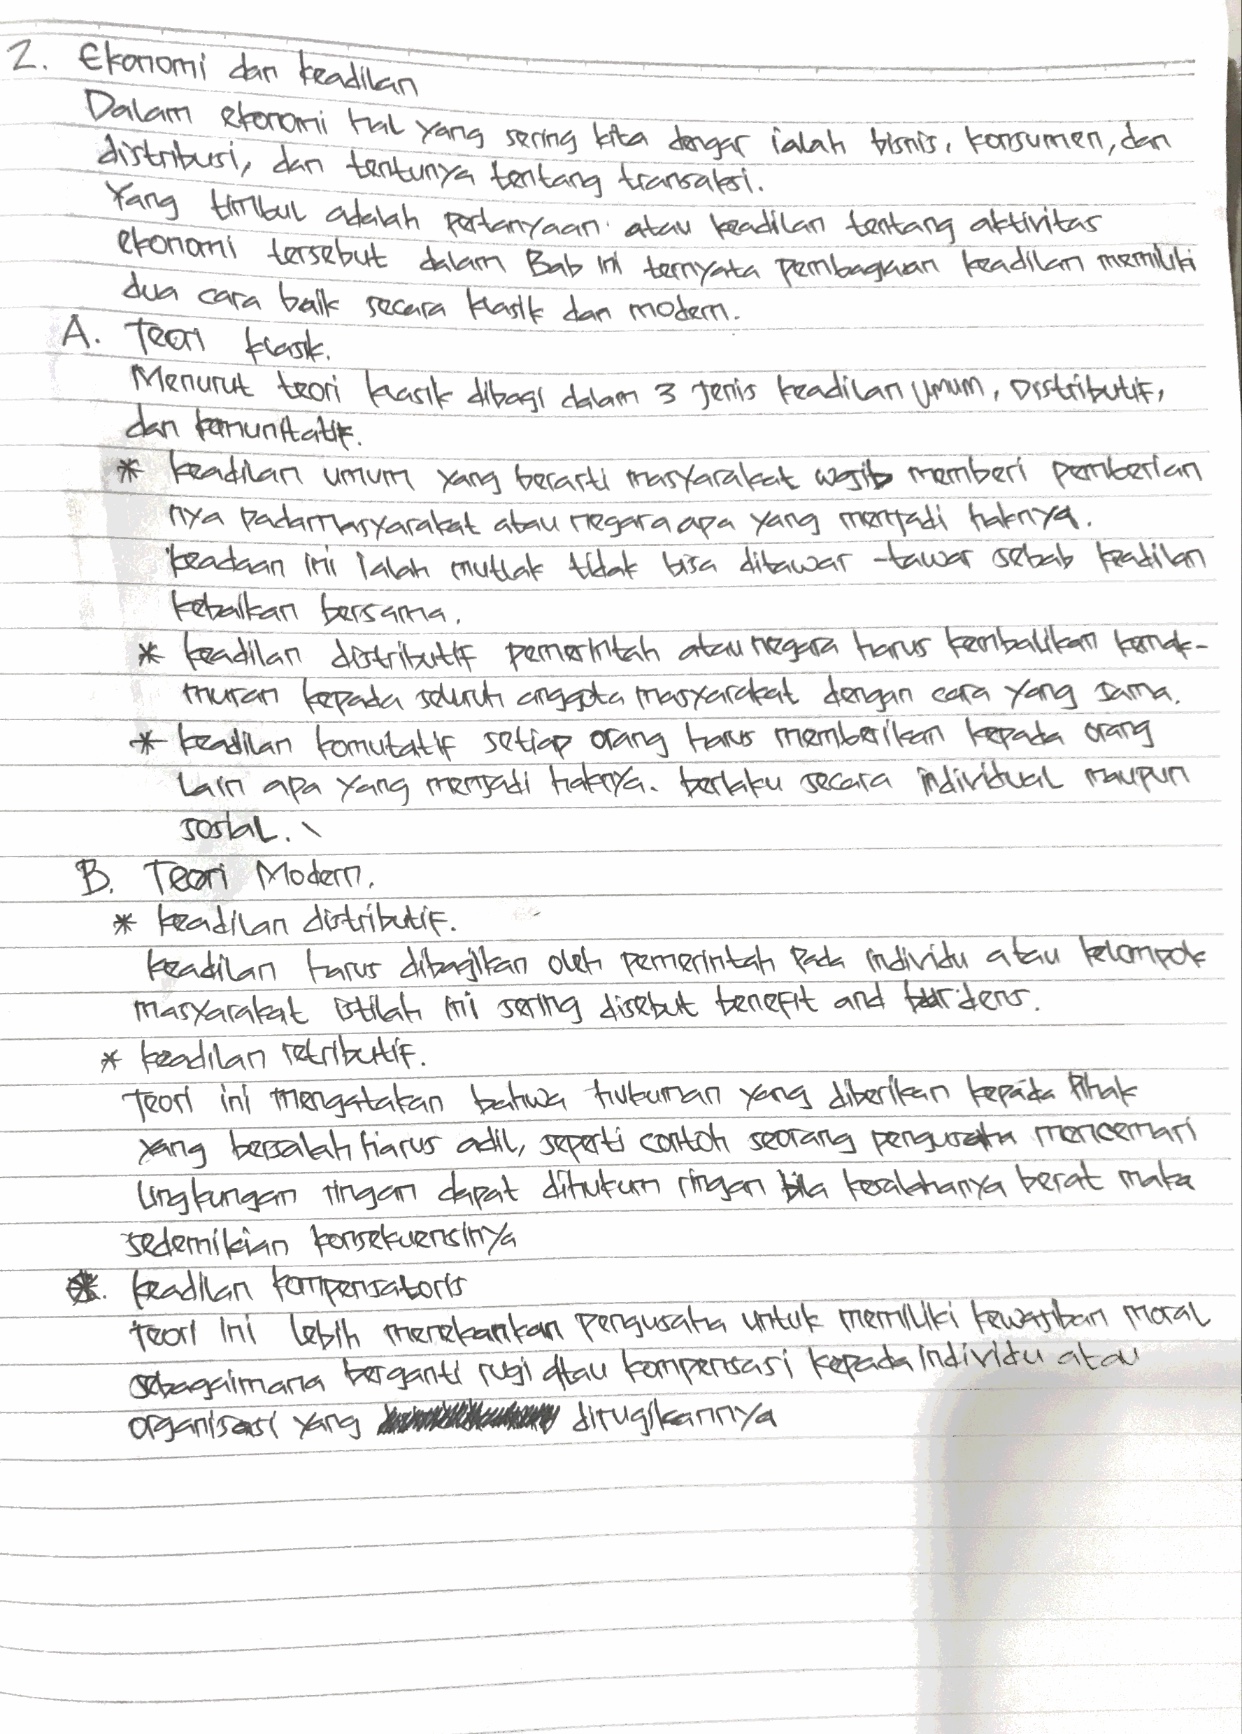 2. Ekonomi dan keadilan
Dalam ekonomi hal yang sering kita dengar ialah bisnis, konsumen, dan
distribusi, dan tentunya tentang transaksi.
Yang timbul adalah pertanyaan atau keadilan tentang aktivitas
ekonomi tersebut dalam Bab ini ternyata pembagian keadilan memiliki
dua cara baik secara klasik dan modern.
A. Teori klasik.
Menurut teori klasik dibagi dalam 3 jenis keadilan Umum, Distributif,
dan komunitatif.
* keadilan umum yang berarti masyarakat wajib memberi pemberian
nya pada masyarakat atau negara apa yang menjadi haknya.
keadaan ini ialah mutlak tidak bisa ditawar-tawar sebab keadilan
kebaikan bersama.
* keadilan distributif pemerintah atau negara harus kembalikan kemak-
muran kepada seluruh anggota masyarakat dengan cara yang sama.
* keadilan komutatif setiap orang harus memberikan kepada orang
lain apa yang menjadi haknya. berlaku secara individual maupun
sosial. \
B. Teori Modern.
* keadilan distributif.
keadilan harus dibagikan oleh pemerintah pada individu atau kelompok
masyarakat istilah ini sering disebut benefit and burdens.
* keadilan retributif.
Teori ini mengatakan bahwa hukuman yang diberikan kepada Pihak
yang bersalah harus adil, seperti contoh seorang pengusaha mencemari
lingkungan ringan dapat dihukum ringan bila kesalahanya berat maka
sedemikian konsekuensinya
*. keadilan kompensatoris
teori ini lebih menekankan pengusaha untuk memiliki kewajiban moral
sebagaimana berganti rugi atau kompensasi kepada individu atau
organisasi yang dirugikannya